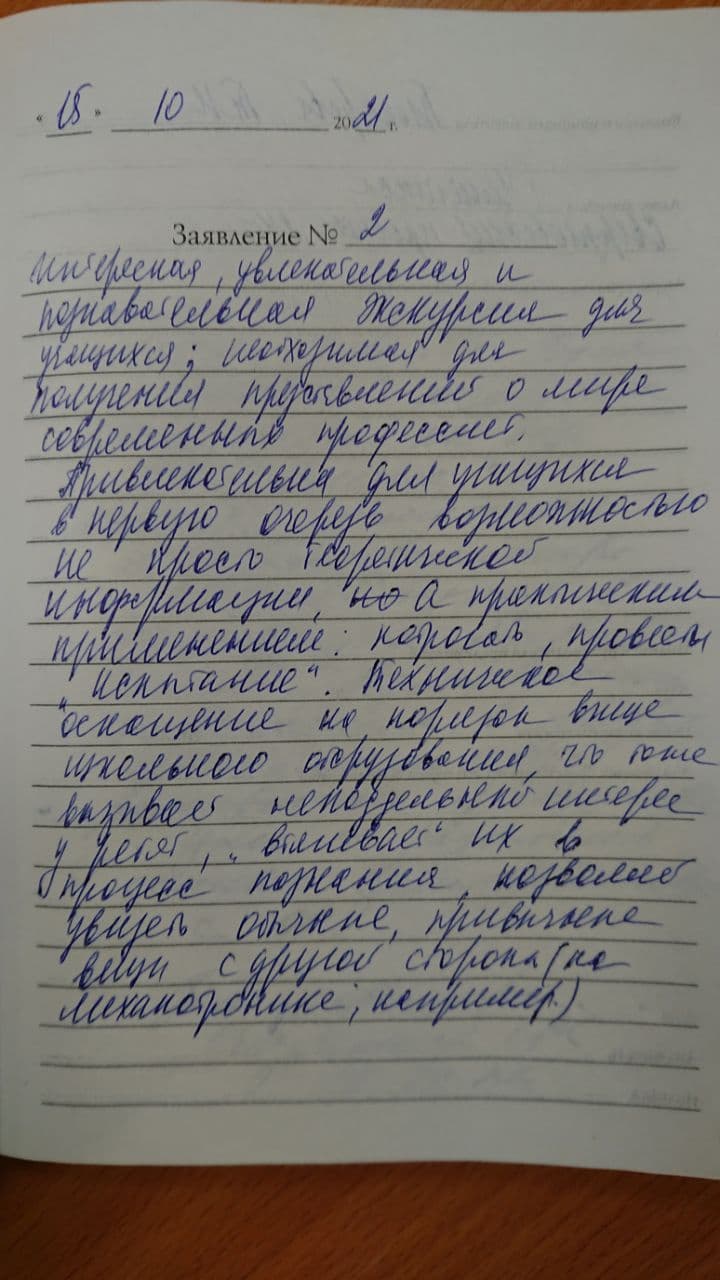 « 15 » 10 2021 г.
Заявление № 2
Интересная, увлекательная и
познавательная экскурсия для
учащихся; необходимая для
получения представлений о мире
современных профессий.
Привлекательна для учащихся
в первую очередь возможностью
не просто теоретической
информации, но а практическим
применением: потрогать, провести
„испытание“. Техническое
оснащение на порядок выше
школьного оборудования, что тоже
вызывает неподдельный интерес
у ребят, „втягивает“ их в
процесс познания, позволяет
увидеть обычные, привычные
вещи с другой стороны (на
механотронике, например.)